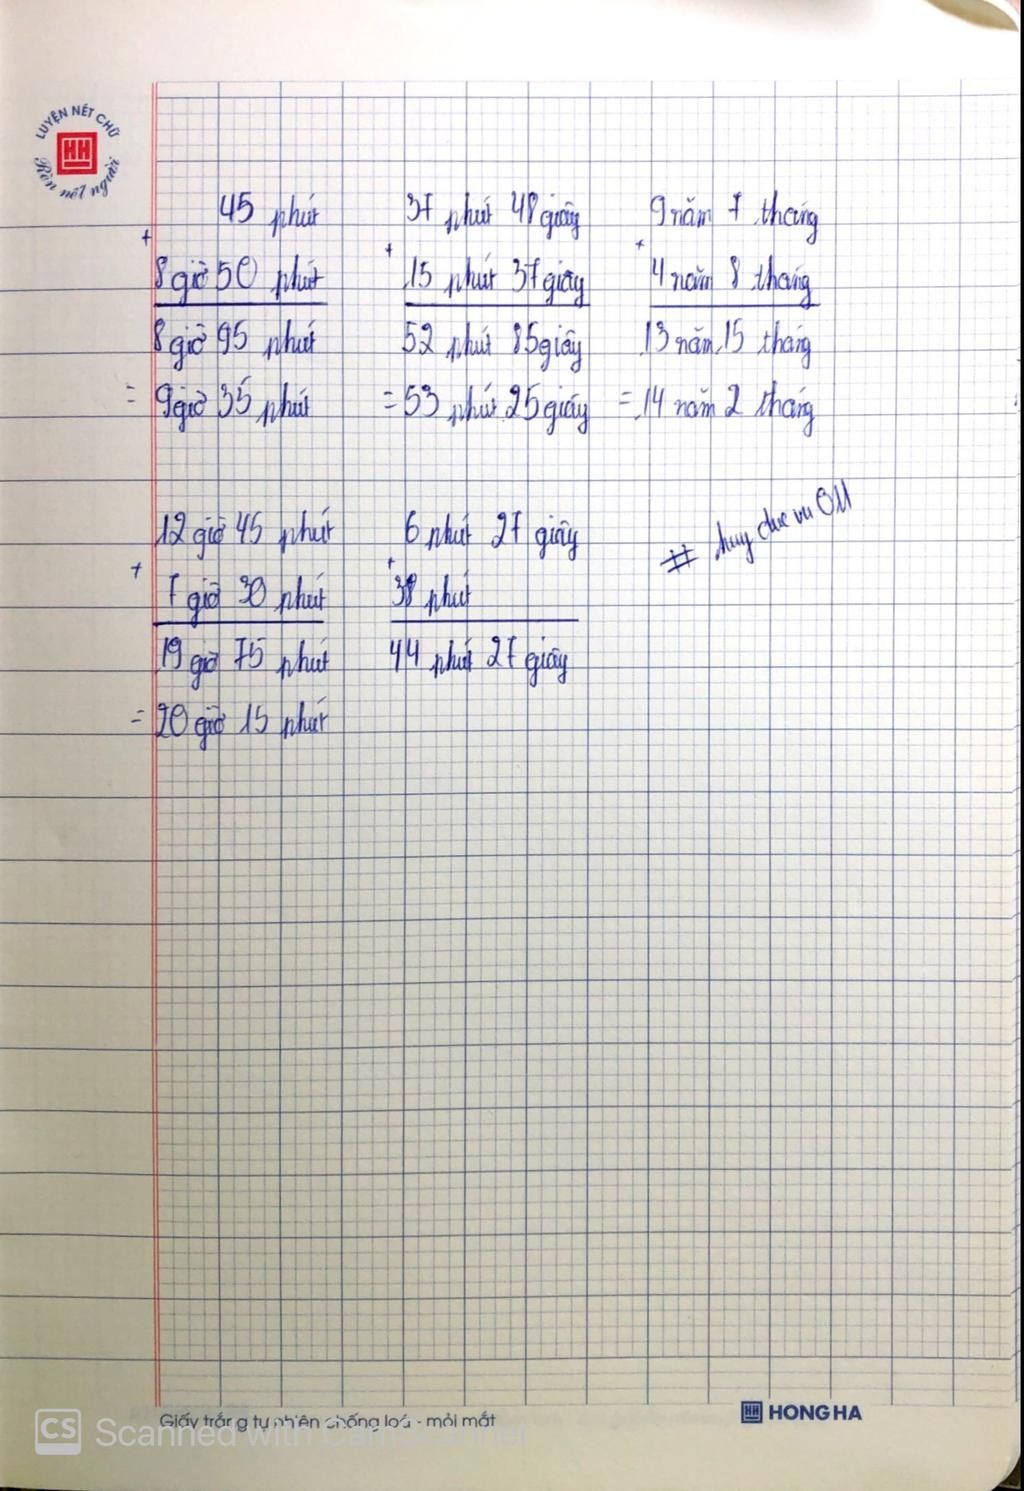 LUYỆN NÉT CHỮ
HH
Rèn nết người
45 phút 37 phút 48 giây 9 năm 7 tháng
+ + +
8 giờ 50 phút 15 phút 37 giây 4 năm 8 tháng
8 giờ 95 phút 52 phút 85 giây 13 năm 15 tháng
= 9 giờ 35 phút = 53 phút 25 giây = 14 năm 2 tháng
12 giờ 45 phút 6 phút 27 giây
# huy duc vu
+ +
7 giờ 30 phút 38 phút
19 giờ 75 phút 44 phút 27 giây
= 20 giờ 15 phút
Giấy trắng tự nhiên chống loá - mỏi mắt
HH HONG HA
CS Scanned with CamScanner